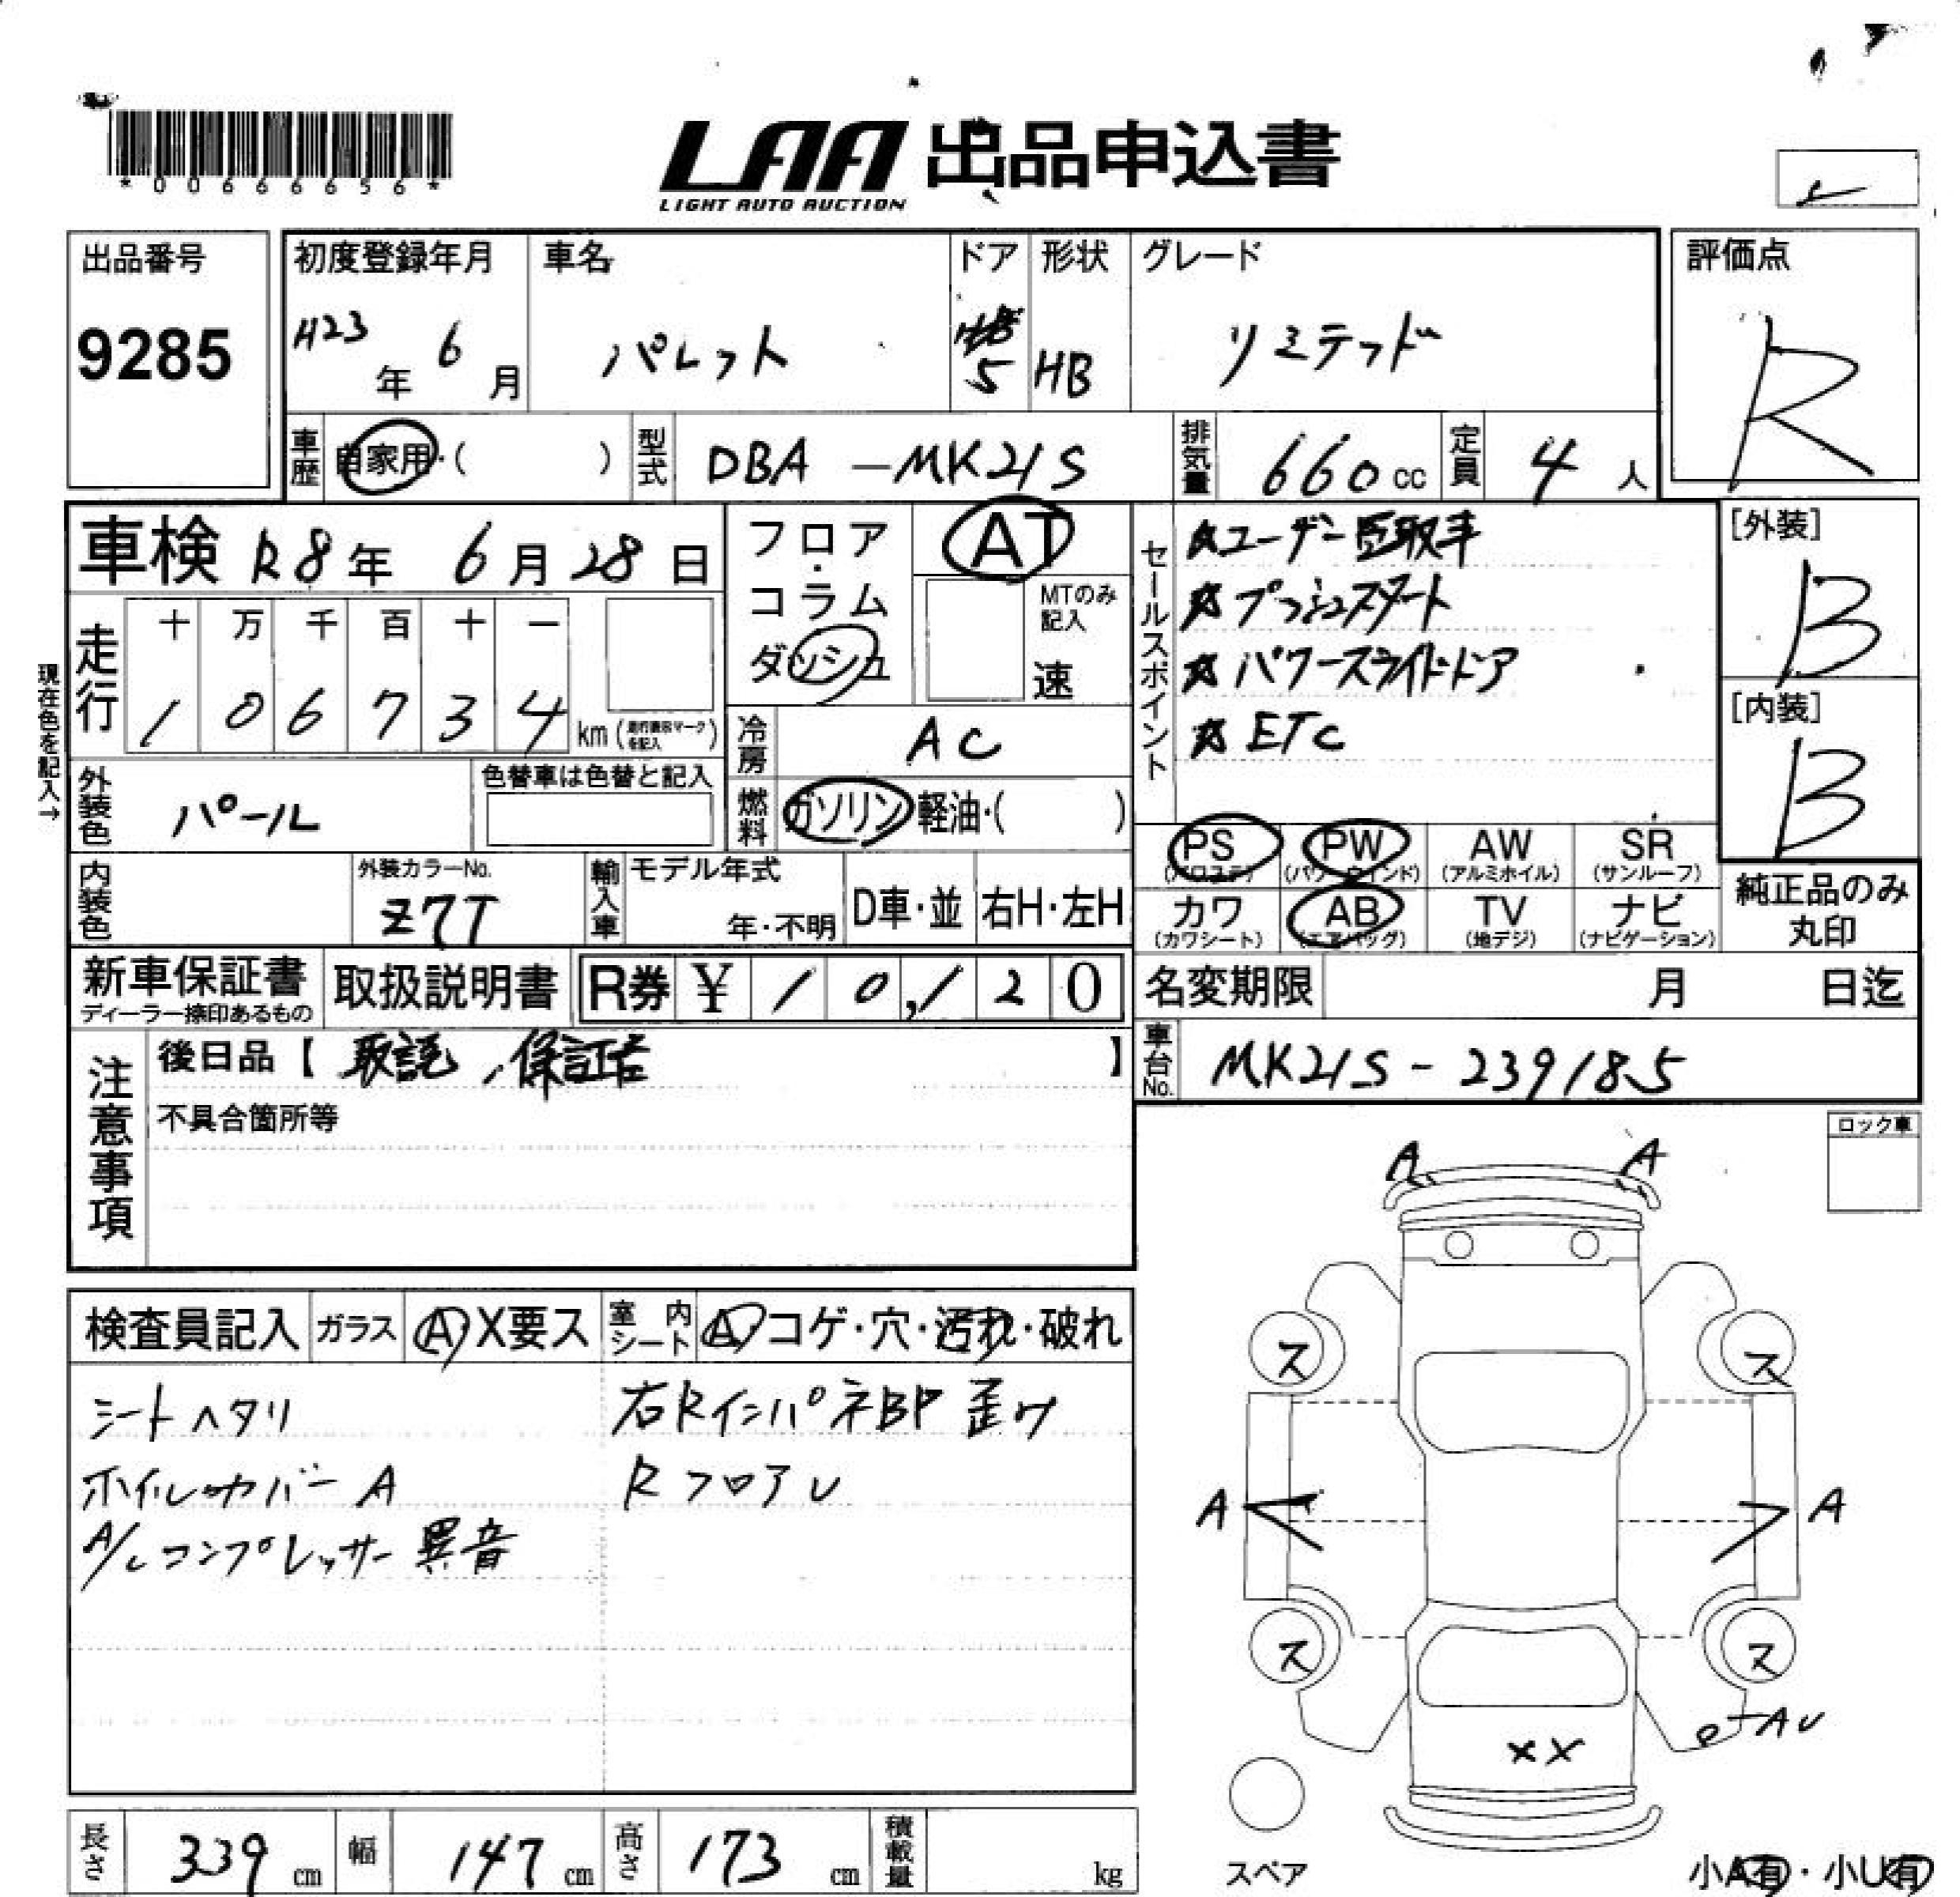 *0066656*
LAA 出品申込書
LIGHT AUTO AUCTION
出品番号
9285
初度登録年月
H23年 6月
車名
パレット
ドア
5
形状
HB
グレード
リミテッド
評価点
R
車歴 自家用・( )
型式 DBA-MK21S
排気量 660cc
定員 4人
車検 R8年 6月28日
フロア・コラム ダッシュ
AT
MTのみ記入
速
セールスポイント
☆ユーザー買取車
☆プッシュスタート
☆パワースライドドア
☆ETC
[外装]
B
[内装]
B
現在色を記入→
走行
十 万 千 百 十 一
1 0 6 7 3 4 km
冷房 AC
燃料 ガソリン 軽油・( )
外装色 パール
色替車は色替と記入
内装色
外装カラーNo.
Z7T
輸入車 モデル年式
年・不明
D車・並 右H・左H
PS PW AW SR
(パワステ) (パワーウインド) (アルミホイル) (サンルーフ)
カワ AB TV ナビ
(カワシート) (エアバッグ) (地デジ) (ナビゲーション)
純正品のみ
丸印
新車保証書
ディーラー捺印あるもの
取扱説明書
R券 ¥10,120
名変期限 月 日迄
車台No. MK21S-239185
注意事項
後日品【 取説、保証書 】
不具合箇所等
ロック車
検査員記入
ガラス A X要ス
室内シート A コゲ・穴・汚れ・破れ
シートヘタリ
ホイルカバーA
A/Cコンプレッサー異音
右RインパネBP歪み
RフロアU
A A
ス ス
A A
ス ス
AU
XX
スペア
長さ 339cm
幅 147cm
高さ 173cm
積載量 kg
小A有・小U有